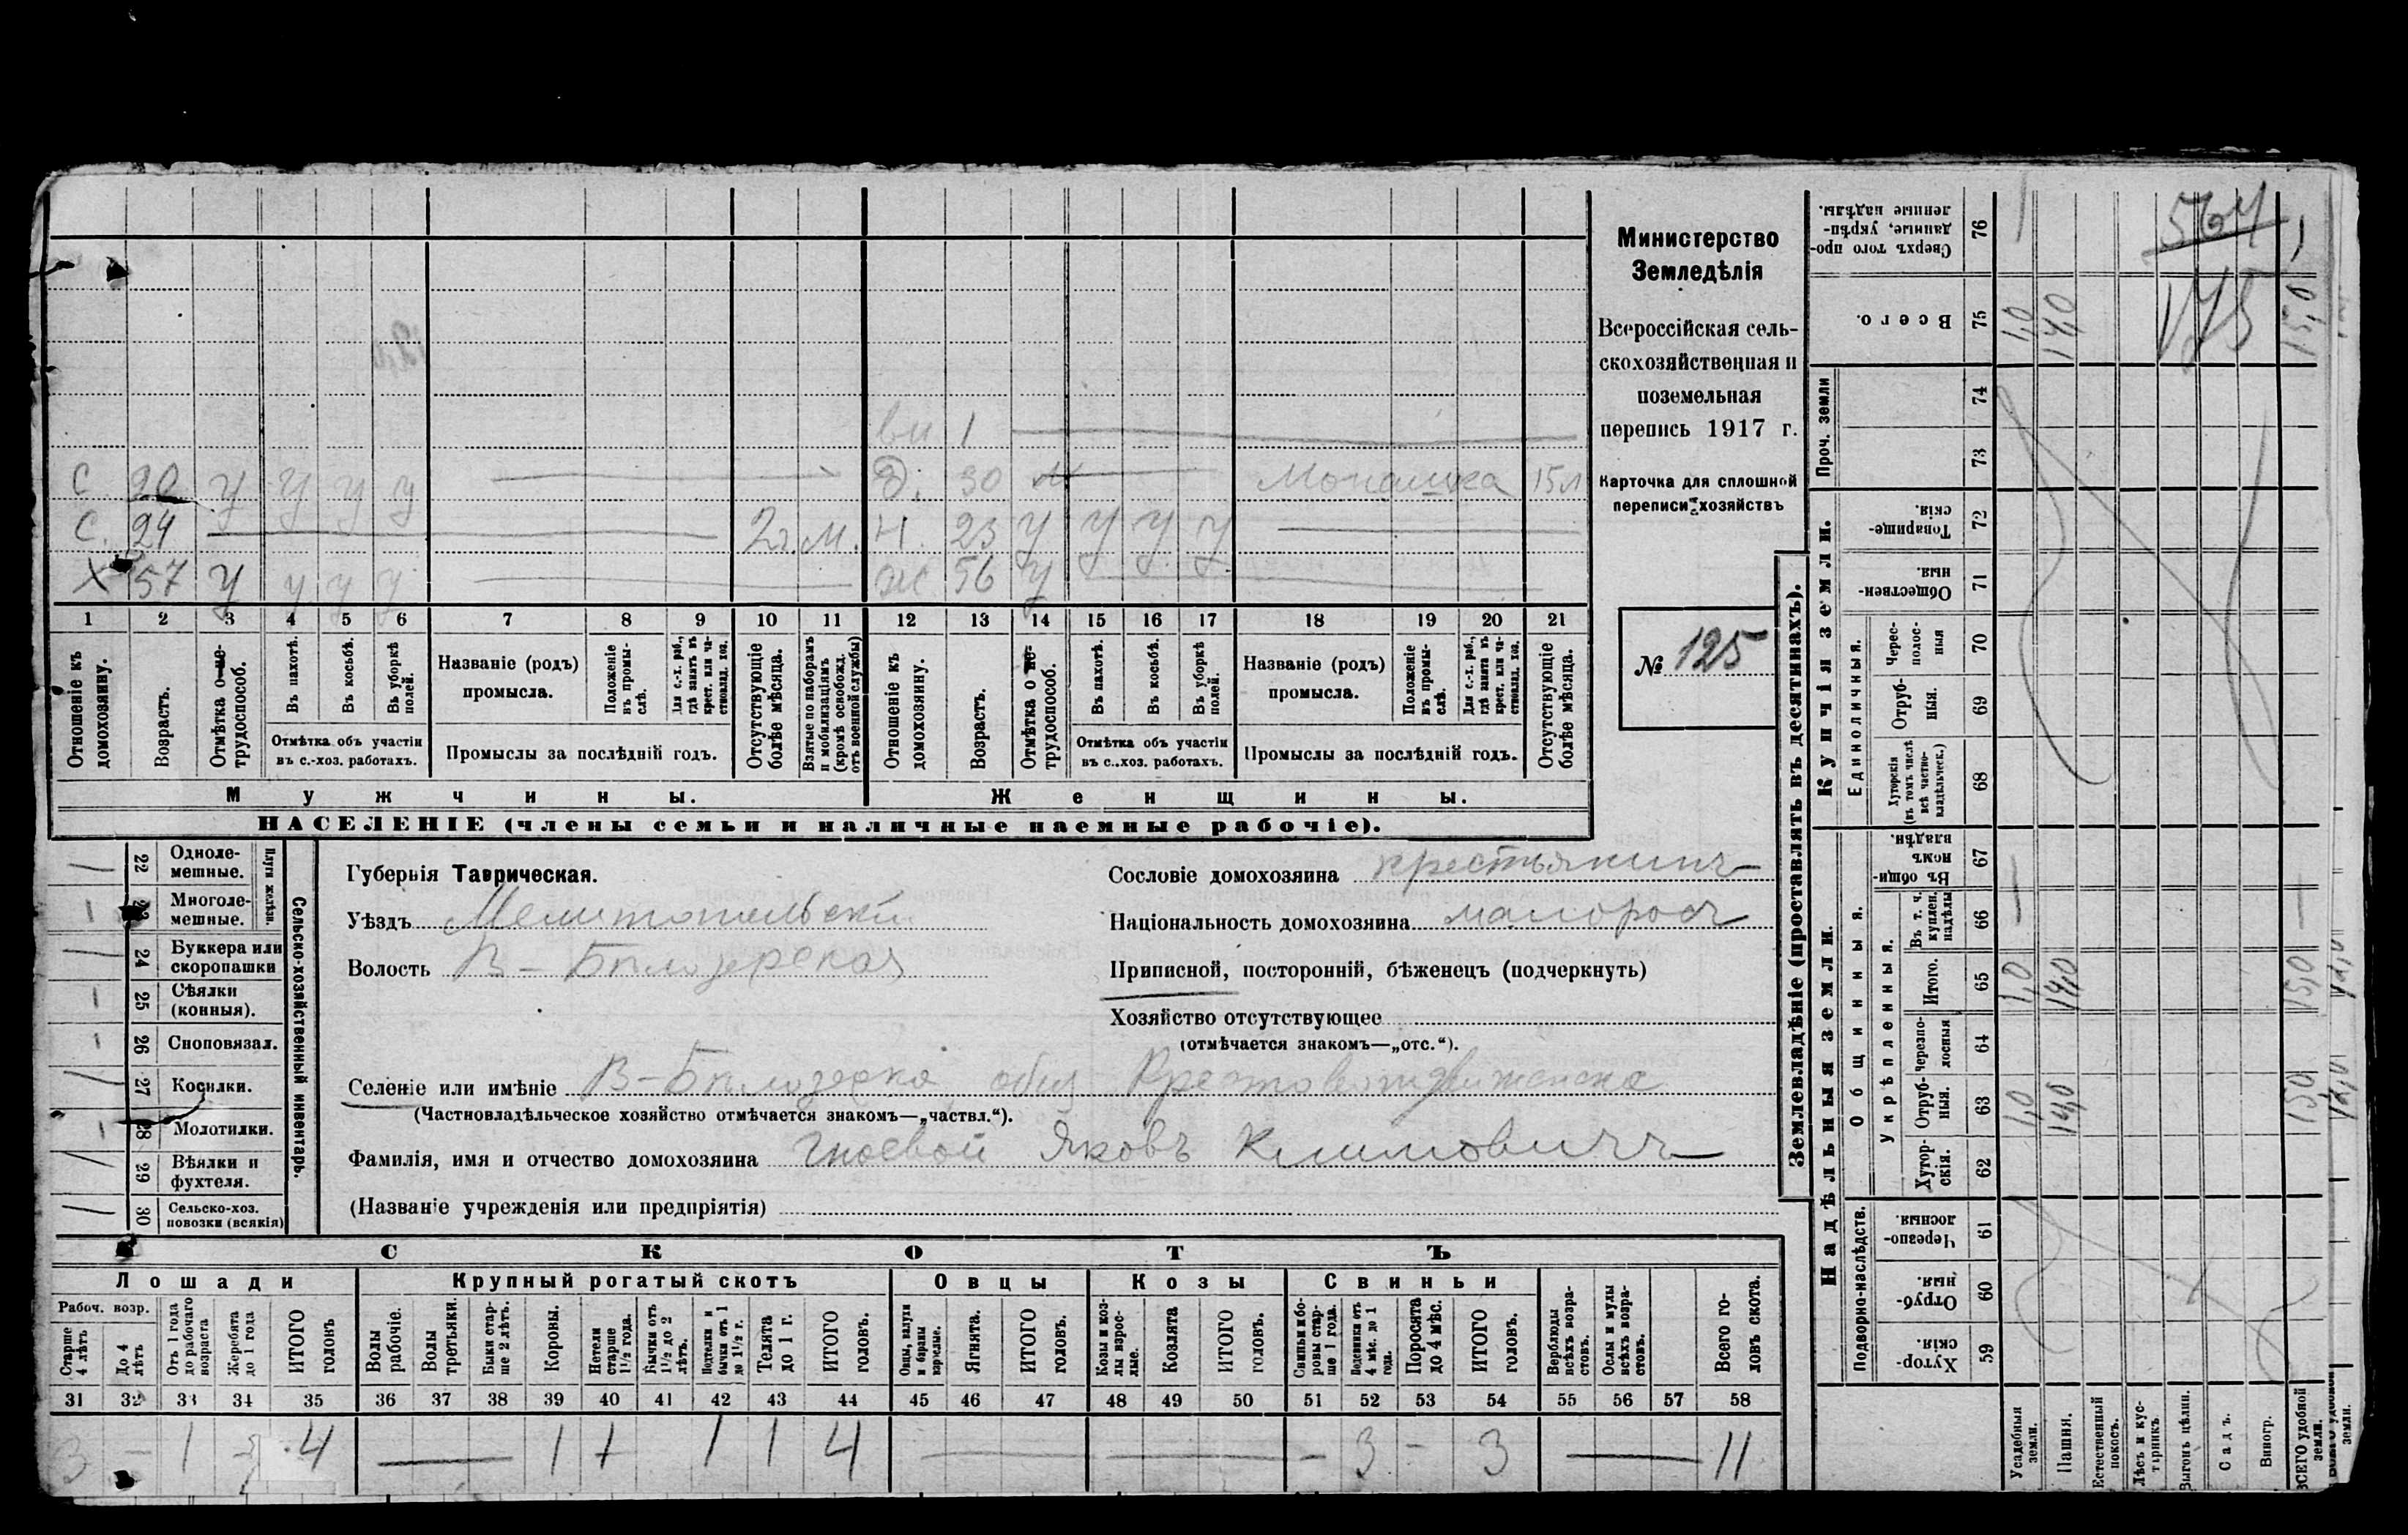 Министерство
Земледѣлія
Всероссійская сель-
скохозяйственная и
поземельная
перепись 1917 г.
Карточка для сплошной
переписи хозяйствъ
№ 125
вн 1
С 20 у у у у Д. 30 Монашка 15 л
С. 24 2 г. м. Н. 23 у у у у
Х 57 у у у у Ж 56 у
1 2 3 4 5 6 7 8 9 10 11 12 13 14 15 16 17 18 19 20 21
Отношеніе къ домохозяину.
Возрастъ.
Отмѣтка о не-трудоспособ.
Въ пахотѣ.
Въ косьбѣ.
Въ уборкѣ полей.
Отмѣтка объ участіи
въ с.-хоз. работахъ.
Названіе (родъ)
промысла.
Положеніе въ промы-слѣ.
Для с.-х. раб., гдѣ занятъ въ крест. или ча-стновлад. хоз.
Промыслы за послѣдній годъ.
Отсутствующіе болѣе мѣсяца.
Взятые по наборамъ и мобилизаціямъ (кромѣ освобожд. отъ военной службы)
Отношеніе къ домохозяину.
Возрастъ.
Отмѣтка о не-трудоспособ.
Въ пахотѣ.
Въ косьбѣ.
Въ уборкѣ полей.
Отмѣтка объ участіи
въ с.-хоз. работахъ.
Названіе (родъ)
промысла.
Положеніе въ промы-слѣ.
Для с.-х. раб., гдѣ занята въ крест. или ча-стновлад. хоз.
Промыслы за послѣдній годъ.
Отсутствующіе болѣе мѣсяца.
Мужчины. Женщины.
НАСЕЛЕНІЕ (члены семьи и наличные наемные рабочіе).
Сельско-хозяйственный инвентарь.
Плуги желѣзн.
22 Одноле-
мешные.
23 Многоле-
мешные.
24 Буккера или
скоропашки
25 Сѣялки
(конныя).
26 Сноповязал.
27 Косилки.
28 Молотилки.
29 Вѣялки и
фухтеля.
30 Сельско-хоз.
повозки (всякія)
Губернія Таврическая.
Уѣздъ Мелитопольскій
Волость В-Бѣлозерская
Сословіе домохозяина крестьянинъ
Національность домохозяина малороссъ
Приписной, посторонній, бѣженецъ (подчеркнуть)
Хозяйство отсутствующее
(отмѣчается знакомъ—„отс.“).
Селеніе или имѣніе В-Бѣлозерка, общ Крестовоздвиженска
(Частновладѣльческое хозяйство отмѣчается знакомъ—„частвл.“).
Фамилія, имя и отчество домохозяина Гноевой Яковъ Климовичъ
(Названіе учрежденія или предпріятія)
СКОТЪ
Лошади Крупный рогатый скотъ Овцы Козы Свиньи
Рабоч. возр.
Старше 4 лѣтъ
До 4 лѣтъ
Отъ 1 года до рабочаго возраста
Жеребята до 1 года
ИТОГО головъ
Волы рабочіе.
Волы третьяки.
Быки стар-ше 2 лѣтъ.
Коровы.
Нетели старше 1½ года.
Бычки отъ 1½ до 2 лѣтъ.
Подтелки и бычки отъ 1 до 1½ г.
Телята до 1 г.
ИТОГО головъ.
Овцы, валухи и бараны взрослые.
Ягнята.
ИТОГО головъ.
Козы и коз-лы взрос-лые.
Козлята
ИТОГО головъ.
Свиньи и бо-ровы стар-ше 1 года.
Подсвинки отъ 4 мѣс. до 1 года.
Поросята до 4 мѣс.
ИТОГО головъ.
Верблюды всѣхъ возра-стовъ.
Ослы и мулы всѣхъ возра-стовъ.
Всего го-ловъ скота.
31 32 33 34 35 36 37 38 39 40 41 42 43 44 45 46 47 48 49 50 51 52 53 54 55 56 57 58
3 — 1 4 — 1 1 1 1 4 — — — 3 — 3 — 11
Землевладѣніе (проставлять въ десятинахъ).
Купчія земли.
Надѣльныя земли.
76 Сверхъ того про-данные, укрѣп-ленные надѣлы.
75 Всего. 1,0 14,0 15,0
564
175
Проч. земли
74
73
72 Товарище-скія.
71 Обществен-ныя.
Единоличныя.
70 Черес-полос-ныя
69 Отруб-ныя.
68 Хуторскія (въ томъ числѣ всѣ частно-владѣльческ.)
Общинныя.
67 Въ общи-номъ владѣн.
Укрѣпленныя.
66 Въ т. ч. куплен. надѣлы
65 Итого. 1,0 14,0 15,0
64 Черезпо-лосныя
63 Отруб-ныя. 1,0 14,0 15,0
62 Хутор-скія.
Подворно-наслѣдств.
61 Черезпо-лосныя.
60 Отруб-ныя.
59 Хутор-скія.
Усадебныя земли.
Пашня.
Естественный покосъ.
Лѣсъ и кус-тарникъ
Выгонъ цѣлин.
Садъ.
Виногр.
ВСЕГО удобной земли.